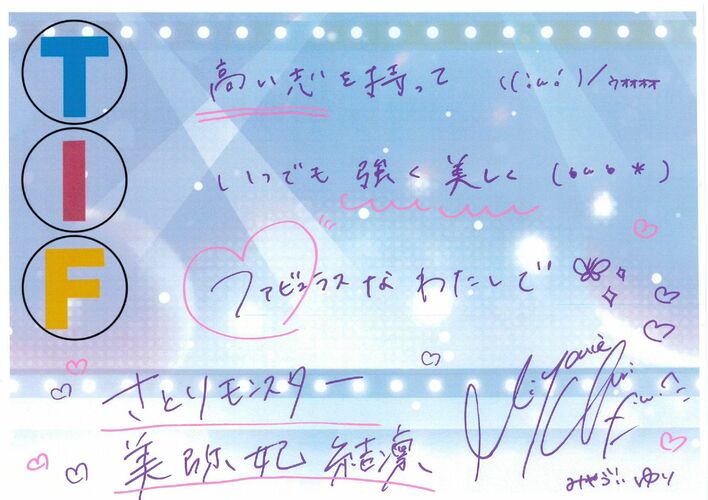 T
高い志を持って ((;ω;)/ウォォォォ
I
いつでも 強く美しく (・ω・*)
F
ファビュラスなわたしで
さとりモンスター
美弥妃 結凛
みやび ゆり